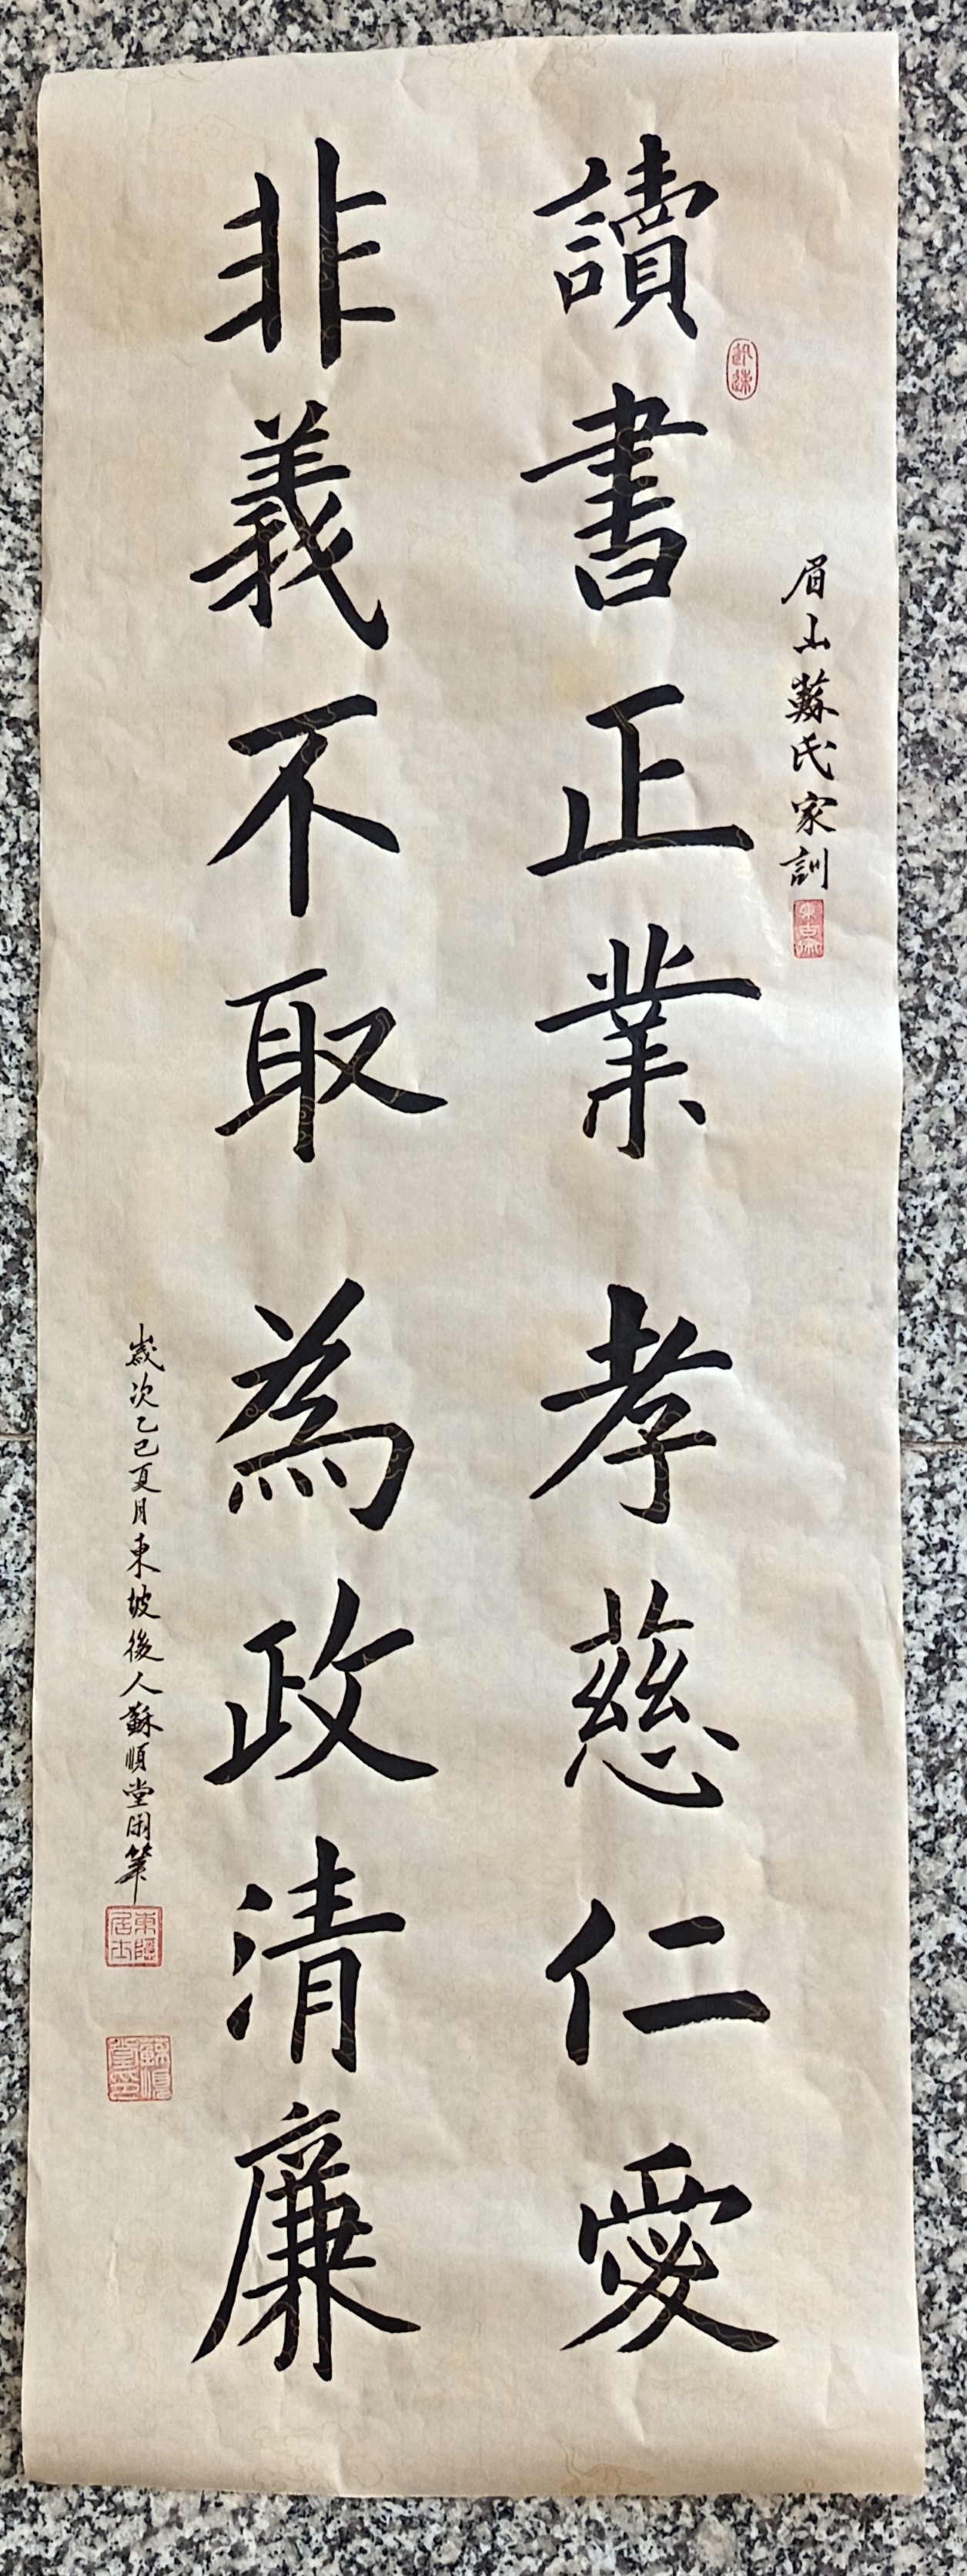 眉山蘇氏家訓
讀書正業孝慈仁愛
非義不取為政清廉
歲次乙巳夏月東坡後人蘇順堂閑筆
東隱居士
蘇順堂印